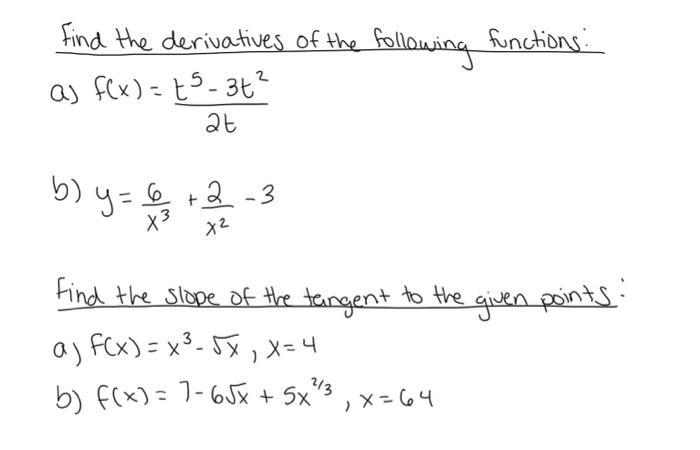 Find the derivatives of the following functions:
a) f(x) = t⁵ - 3t² / 2t
b) y = 6/x³ + 2/x² - 3
Find the slope of the tangent to the given points:
a) f(x) = x³ - √x , x = 4
b) f(x) = 7 - 6√x + 5x^2/3 , x = 64